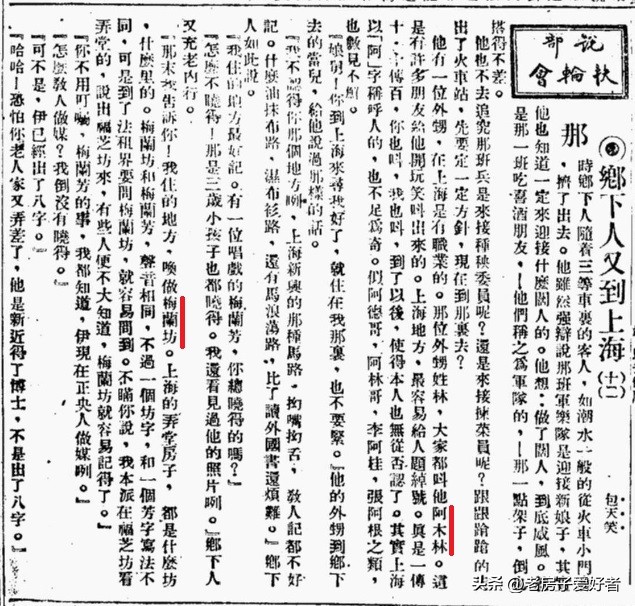 說部
扶輪會
鄉下人又到上海(十二)
包天笑
那時鄉下人隨着三等車裏的客人,如潮水一般的從火車小門
,擠了出去。他雖然強辯說那班軍樂隊是迎接新娘子,其
他也知道一定來迎接什麼闊人的。他想:做了闊人,到底威風。
是那一班吃喜酒朋友,—他們稱之爲軍隊的,—那一點架子,倒
搭得不差。
他也不去追究那班兵是來接種秧委員呢?還是來接揀菜員呢?跟跟蹌蹌的
出了火車站,先要定一定方針,現在到那裏去?
他有一位外甥,在上海是有職業的。那位外甥姓林,大家都呌他阿木林。這
是有許多朋友給他開玩笑呌出來的。上海地方,最容易給人題綽號。眞是一傳
十,十傳百,你也呌,我也呌,到了以後,使得本人也無從否認了。其實上海
以『阿』字稱呼人的,也不足爲奇。似阿德哥,阿林哥,李阿桂,張阿根之類,
也數見不鮮。
『娘舅!你到上海來尋我好了,就住在我那裏,也不要緊。』他的外甥到鄉下
去的當兒,給他說過那樣的話。
『我不認得你那個地方咧,上海新興的那種馬路,拗嘴拗舌,敎人記都不好
記。什麼油抹布路,濕布衫路,還有馬浪蕩路,比了讀外國書還煩難。』鄉下
人如此說。
『我住的地方最好記。有一位唱戲的梅蘭芳,你總曉得的嗎?』
『怎麼不曉得!那是三歲小孩子也都曉得。我還看見過他的照片咧。』鄉下人
又充老內行。
『那末我告訴你!我住的地方,喚做梅蘭坊。上海的弄堂房子,都是什麼坊
,什麼里的。梅蘭坊和梅蘭芳,聲音相同,不過一個坊字,和一個芳字寫法不
同,可是到了法租界要問梅蘭坊,就容易問到。不瞞你說,我本派在福芝坊看
弄堂的,說出福芝坊來,有些人便不大知道,梅蘭坊就容易記得了。』
『你不用叮囑,梅蘭芳的事,我都知道,伊現在正央人做媒咧。』
『怎麼敎人做媒?我倒沒有曉得。』
『可不是,伊已經出了八字。』
『哈哈!恐怕你老人家又弄差了,他是新近得了博士,不是出了八字。』
头条 @老房子爱好者